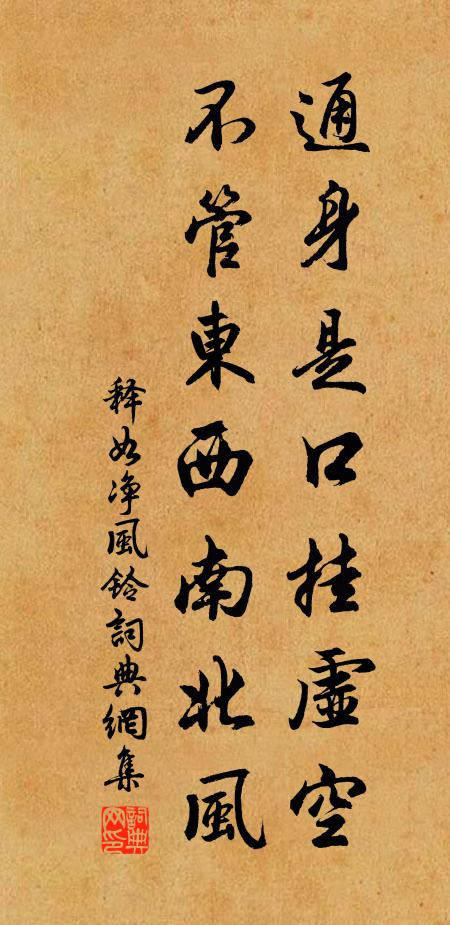 通身是口挂虛空
不管東西南北風
释如净風鈴詞典網集
詞典
网印